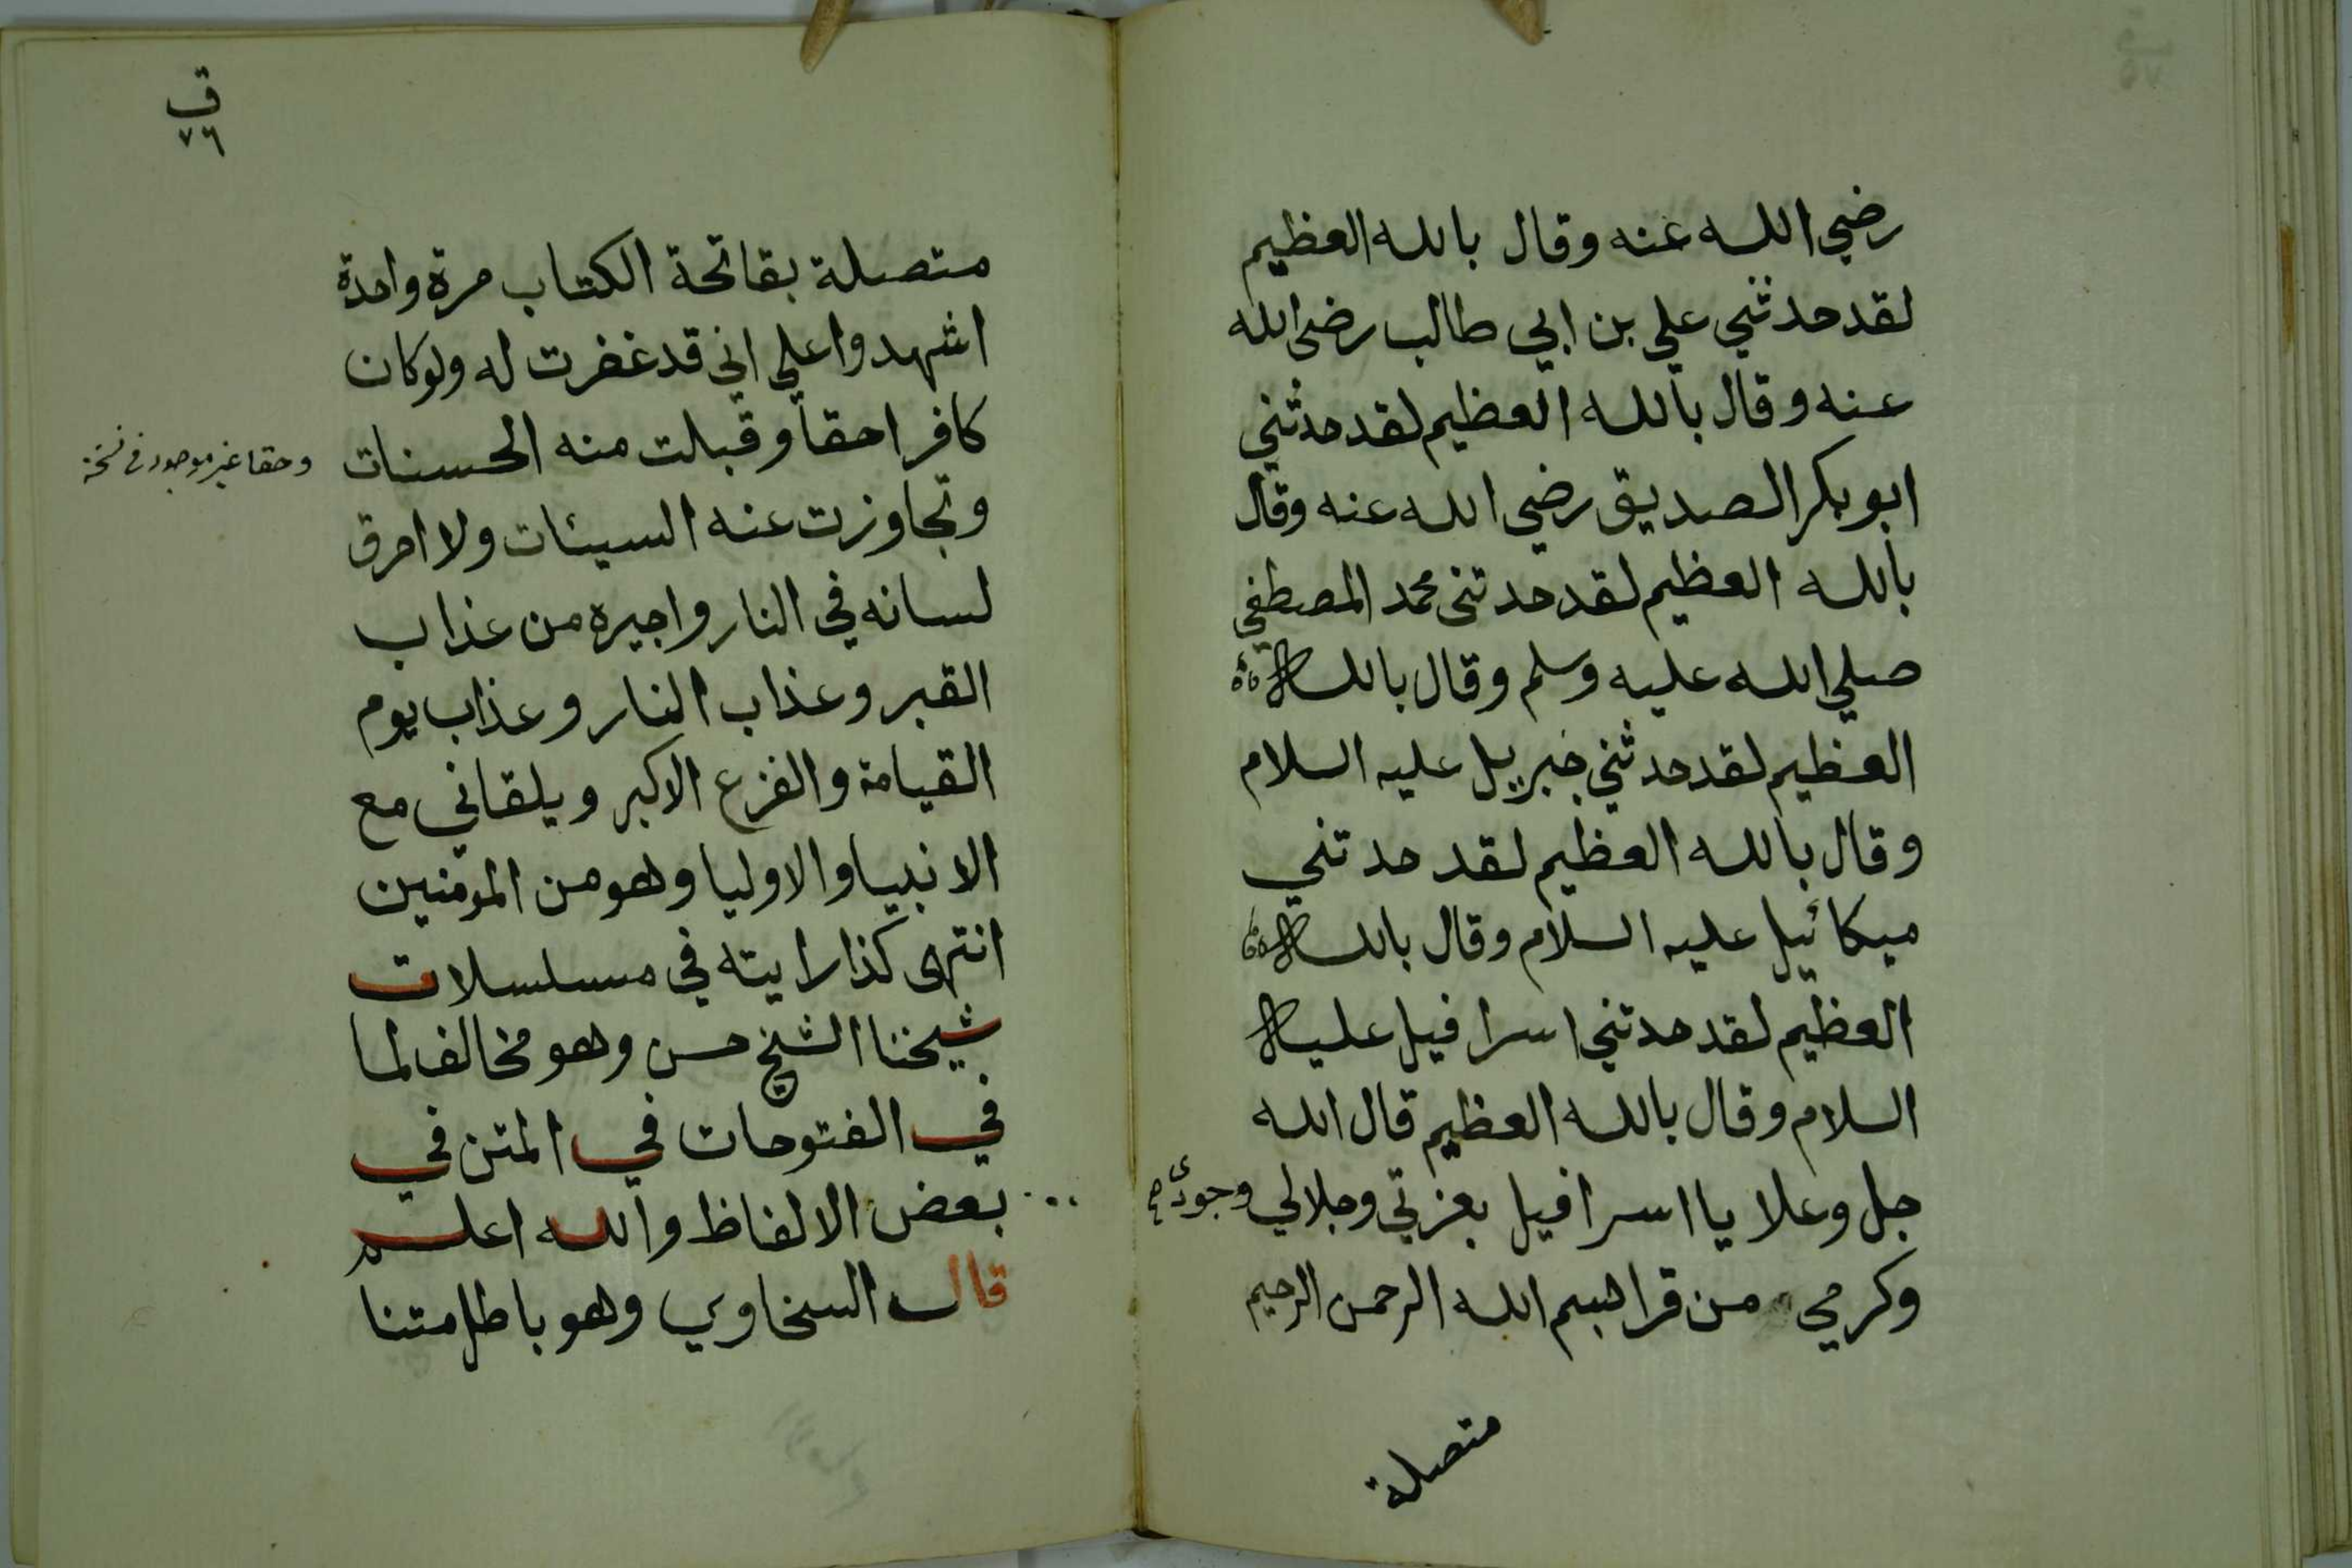 رضي الله عنه وقال بالله العظيم
لقد حدثني علي بن ابي طالب رضي الله
عنه وقال بالله العظيم لقد حدثني
ابو بكر الصديق رضي الله عنه وقال
بالله العظيم لقد حدثني محمد المصطفي
صلي الله عليه وسلم وقال بالله
العظيم لقد حدثني جبريل عليه السلام
وقال بالله العظيم لقد حدثني
ميكائيل عليه السلام وقال بالله
العظيم لقد حدثني اسرافيل عليه
السلام وقال بالله العظيم قال الله
جل وعلا يا اسرافيل بعزتي وجلالي وجودى
وكرمي من قرا بسم الله الرحمن الرحيم
متصلة
ق
٧٦
متصلة بفاتحة الكتاب مرة واحدة
اشهدوا علي اني قد غفرت له ولو كان
كافرا حقا وقبلت منه الحسنات
وحقا غير موجود في نسخة
وتجاوزت عنه السيئات ولا احرق
لسانه في النار واجيره من عذاب
القبر وعذاب النار وعذاب يوم
القيامة والفزع الاكبر ويلقاني مع
الانبيا والاوليا وهو من المومنين
انتهى كذا رايته في مسلسلات
شيخنا الشيخ حسن وهو مخالف لما
في الفتوحات في المتن في
بعض الالفاظ والله اعلم
قال السخاوي وهو باطل متنا